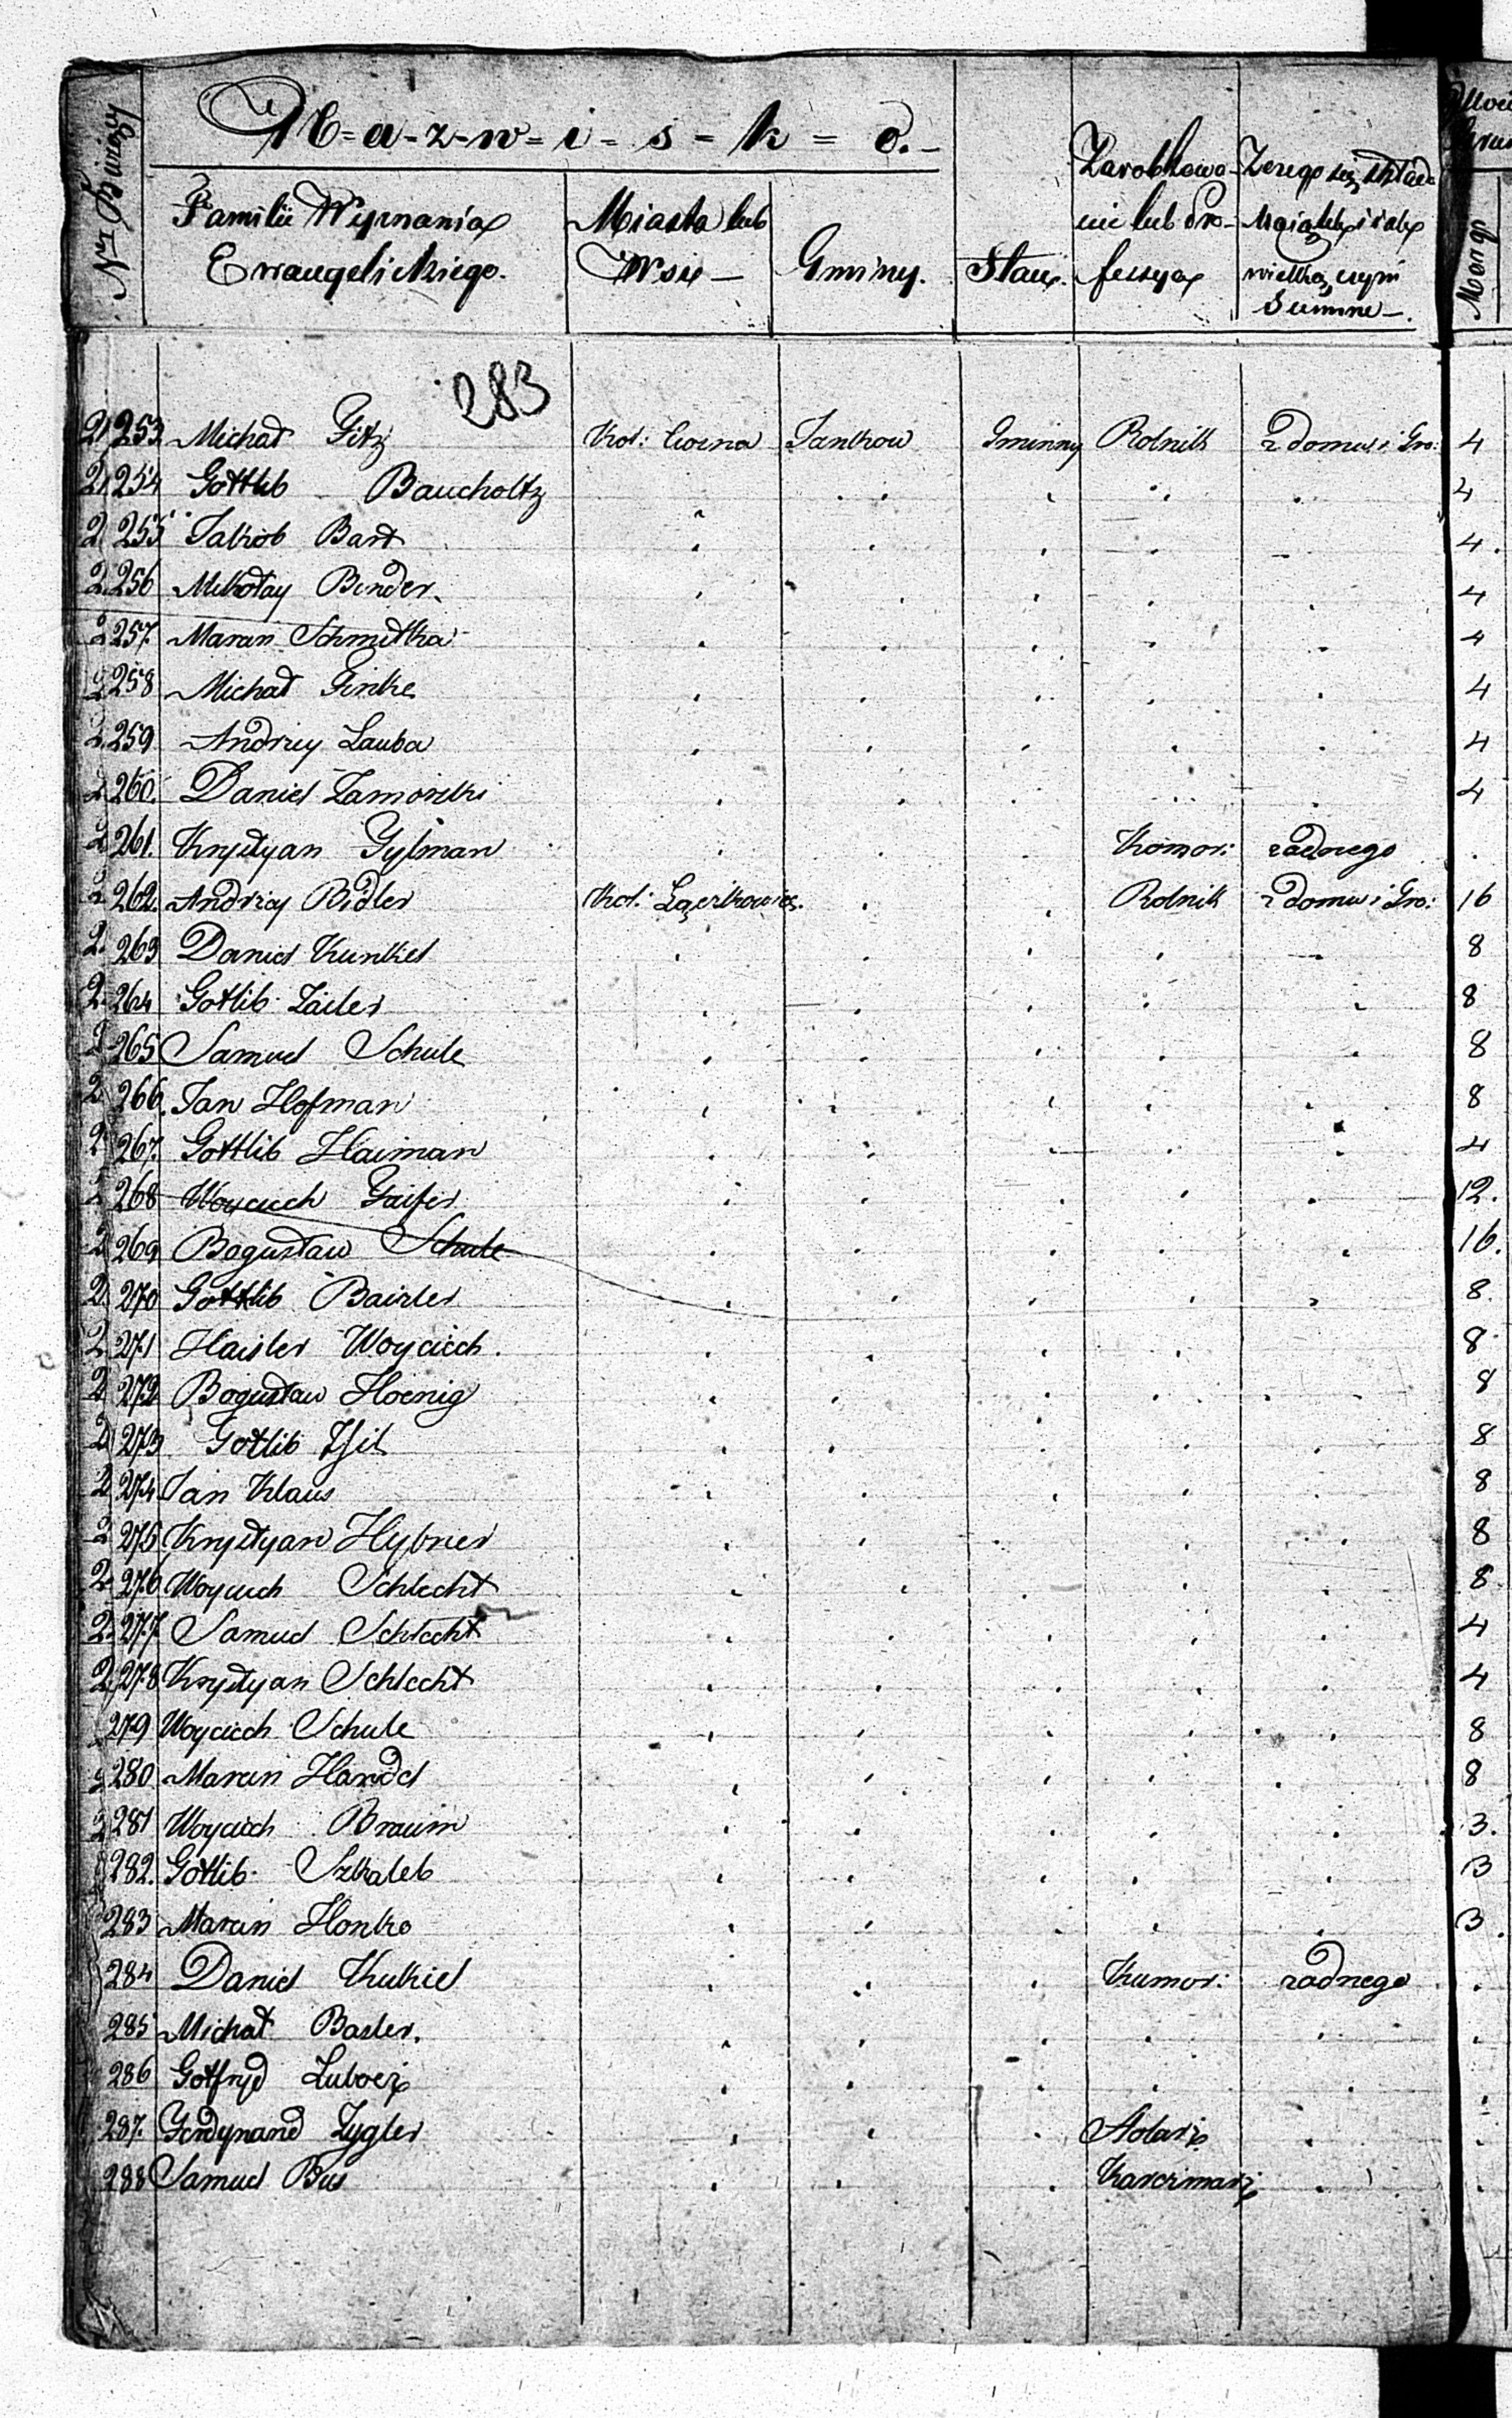 N-a-z-w-i-s-k-o.
Familii Wyznania Ewangelickiego.
Miasta lub Wsie
Gminy.
Stan.
Zarobkowanie lub Professya
Morgi
283
253 Michał Fitz Kol: Janków Gminny Rolnik z domu i Gro: 4
254 Gottlib Baucholtz 4
255 Jakób Bart 4
256 Mikołay Bender 4
257 Marcin Schmidtka 4
258 Michał Finke 4
259 Andrzey Lauba 4
260. Daniel Zamorski 4
261. Krystyan Gylman Komor: żadnego
262. Andrzey Bidler Kol: Rolnik z domu i Gro: 16
263 Daniel Kunkel 8
264 Gotlib Zailer 8
265 Samuel Schule 8
266. Jan Hofman 8
267. Gottlib Haiman 4
268 Woyciech Gaifer 12.
269 Bogusław Schule 16.
270 Gottlib Baizler 8.
271 Haisler Woyciech. 8
272 Bogusław Hoenig 8
273 Gotlib 8
274 Jan Klaus 8
275 Krystyan Hybner 8
276 Woyciech Schlecht 8
277 Samuel Schlecht 4
278 Krystyan Schlecht 4
279 Woyciech Schule 8
280 Marcin Handel 8
281 Woyciech Braun 3.
282. Gotlib Szkaleb 3
283 Marcin Honko 3
284 Daniel Kukiel Kumor: żadnego
285 Michał Basler.
286 Gotfryd
287. Ferdynand Zygler Stolarz
288 Samuel Bus Karczmarz